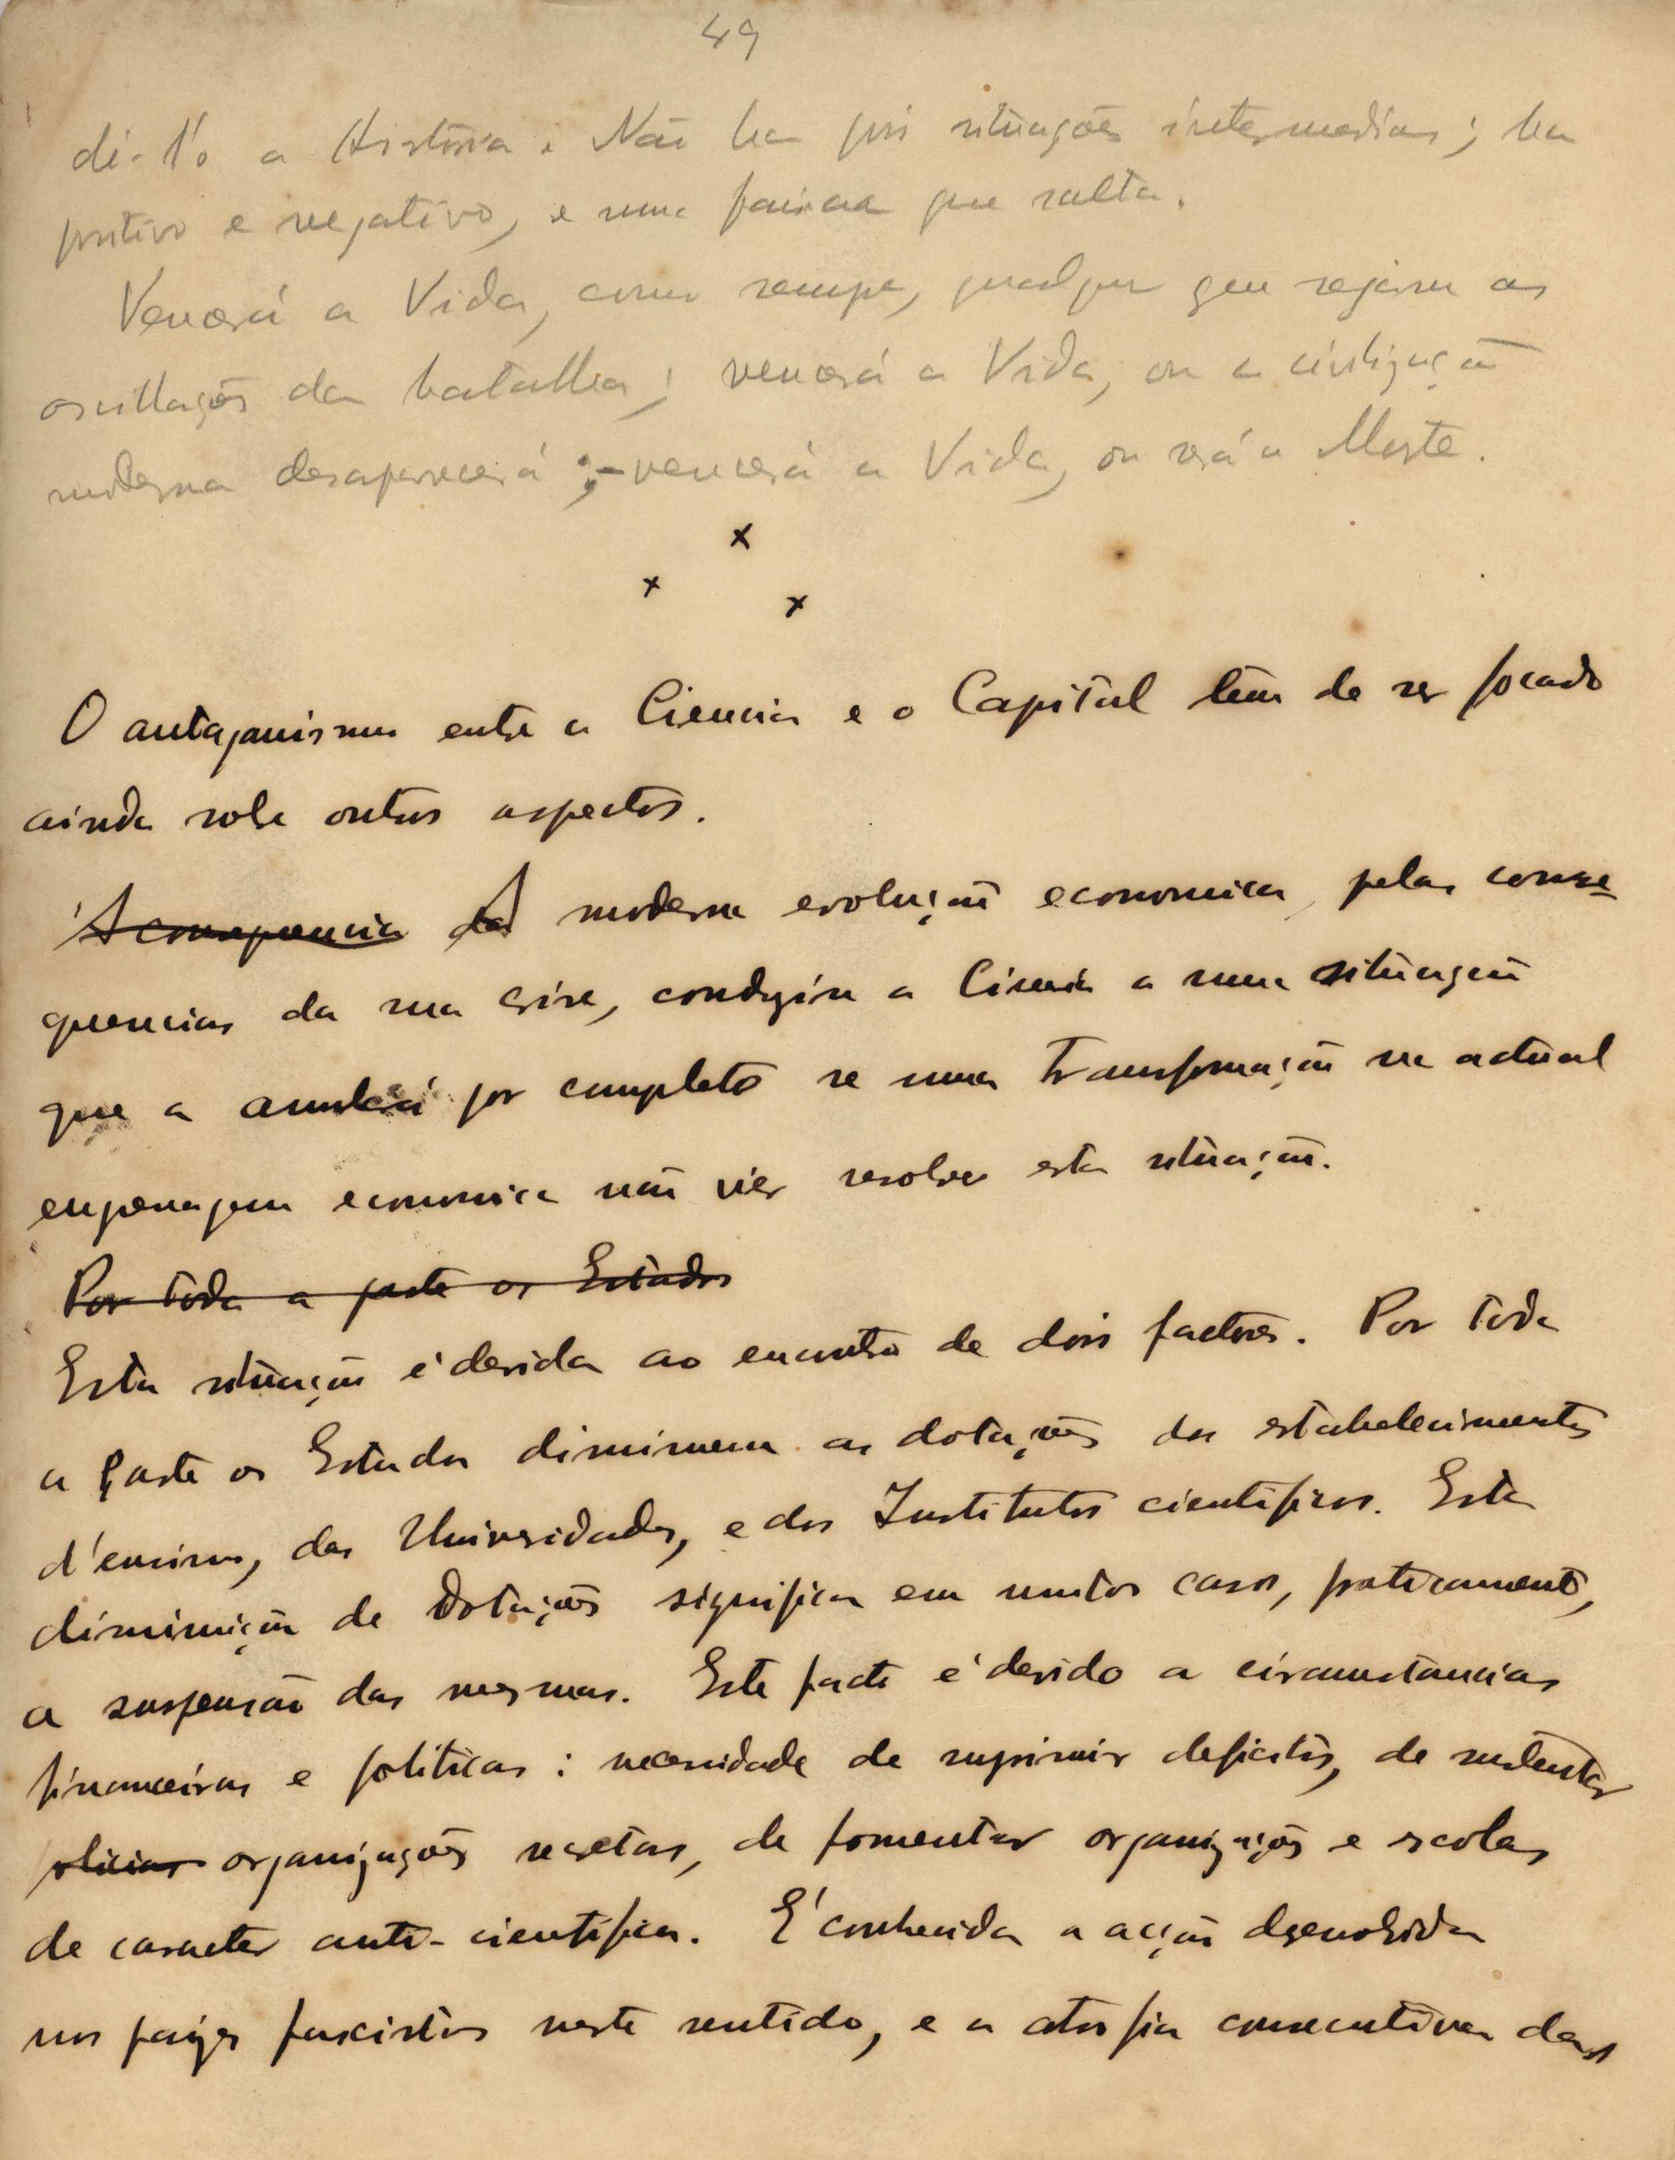 49
di-l'o a Historia. Não ha pois situações intermedias; ha
positivo e negativo, e uma faisca que salta.
Vencerá a Vida, como sempre, qualquer que sejam as
oscillações da batalha; vencerá a Vida, ou a civilização
moderna desaparecerá;-vencerá a Vida, ou será a Morte.
x
x x
O antagonismo entre a Ciencia e o Capital tem de ser focado
ainda sobre outros aspectos.
A consequencia da A moderna evolução economica, pelas conse-
quencias da sua crise, conduziu a Ciencia a uma situação
que a anulará por completo se uma transformação na actual
engrenagem economica não vier resolver esta situação.
Por toda a parte os Estados
Esta situação é devida ao encontro de dois factores. Por toda
a parte os Estados diminuem as dotações dos estabelecimentos
d'ensino, das Universidades, e dos Institutos cientificos. Esta
diminuição de Dotações significa em muitos casos, praticamente,
a suspensão das mesmas. Este facto é devido a circumstancias
financeiras e politicas: necessidade de suprimir deficits, de sustentar
policias organizações secretas, de fomentar organizações e escolas
de caracter anti-cientifico. É conhecida a acção desenvolvida
nos paizes fascistas neste sentido, e a atrofia consecutiva das